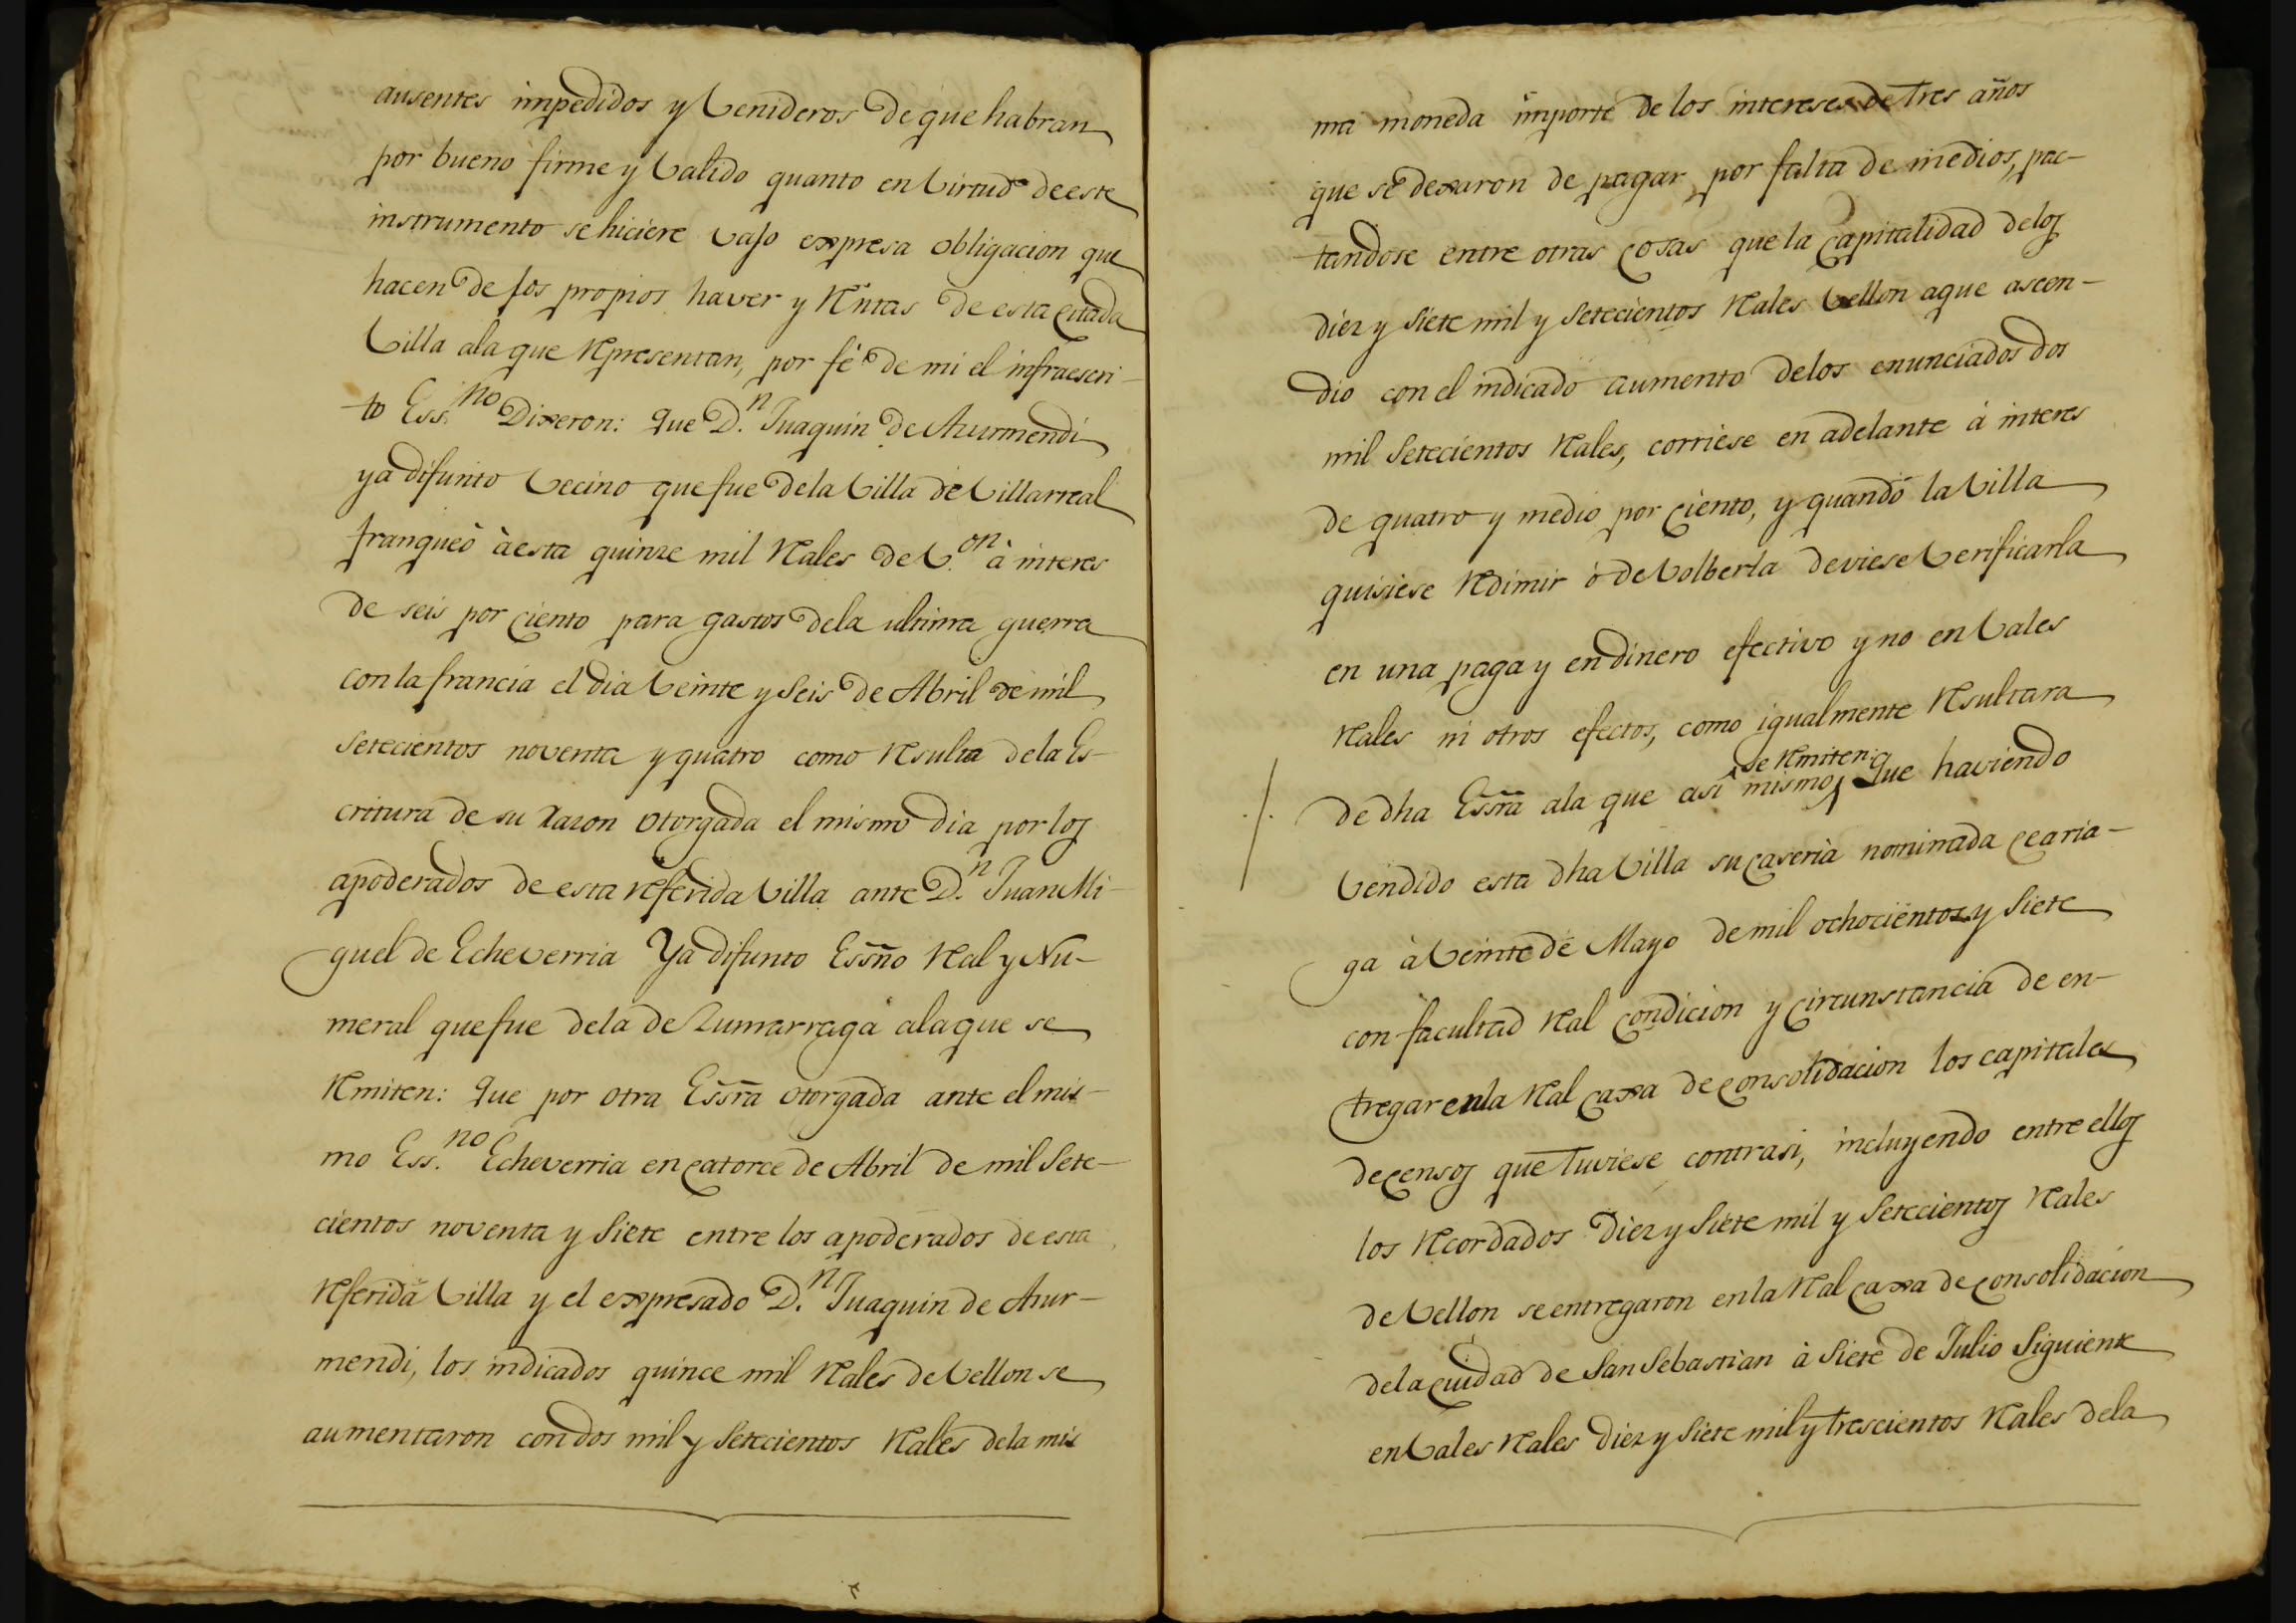 ausentes impedidos y Venideros de que habran
por bueno firme y Valido quanto en Virtud de este
instrumento se hiciere vajo expresa obligacion que
hacen de los propios haver y Rentas de esta citada
Villa ala que Representan, por fé de mi el infraescri-
to Ess.no Dixeron: Que D.n Juaquin de Azurmendi
ya difunto Vecino que fue dela Villa de Villarreal
franqueò à esta quinze mil Rales de V.on à interes
de seis por ciento para gastos dela ultima guerra
con la francia el dia Veinte y Seis de Abril de mil
Setecientos noventa y quatro como Resulta dela Es-
critura de su Razon otorgada el mismo dia por los
apoderados de esta Referida Villa ante D.n Juan Mi-
guel de Echeverria Ya difunto Essño Ral y Nu-
meral que fue dela de Zumarraga ala que se
Remiten: Que por otra Essra otorgada ante el mis-
mo Ess.no Echeverria en catorce de Abril de mil Sete-
cientos noventa y Siete entre los apoderados de esta
Referida Villa y el expresado D.n Juaquin de Azur-
mendi, los indicados quince mil Rales de Vellon se
aumentaron con dos mil y Setecientos Rales dela mis
ma moneda importe de los intereses de tres años
que se dexaron de pagar por falta de medios, pac-
tandose entre otras cosas que la Capitalidad delos
diez y Siete mil y Setecientos Rales Vellon aque ascen-
dio con el indicado aumento delos enunciados dos
mil Setecientos Rales, corriese en adelante à interes
de quatro y medio por ciento, y quando la Villa
quisiese Redimir ò deVolberla deviese Verificarla
en una paga y en dinero efectivo y no en Vales
Rales ni otros efectos, como igualmente Resultara
de dha Essra ala que asi mismo se Remiten: Que haviendo
Vendido esta dha Villa su caseria nominada cearia-
ga à Veinte de Mayo de mil ochocientos y Siete
con facultad Ral condicion y circunstancia de en-
tregar en la Ral caxa de consolidacion los capitales
de censos que tuviese contra si, incluyendo entre ellos
los Recordados Diez y Siete mil y Setecientos Rales
de Vellon se entregaron en la Ral caxa de consolidacion
dela ciudad de San Sebastian à Siete de Julio Siguiente
en Vales Rales Diez y Siete mil y trescientos Rales dela